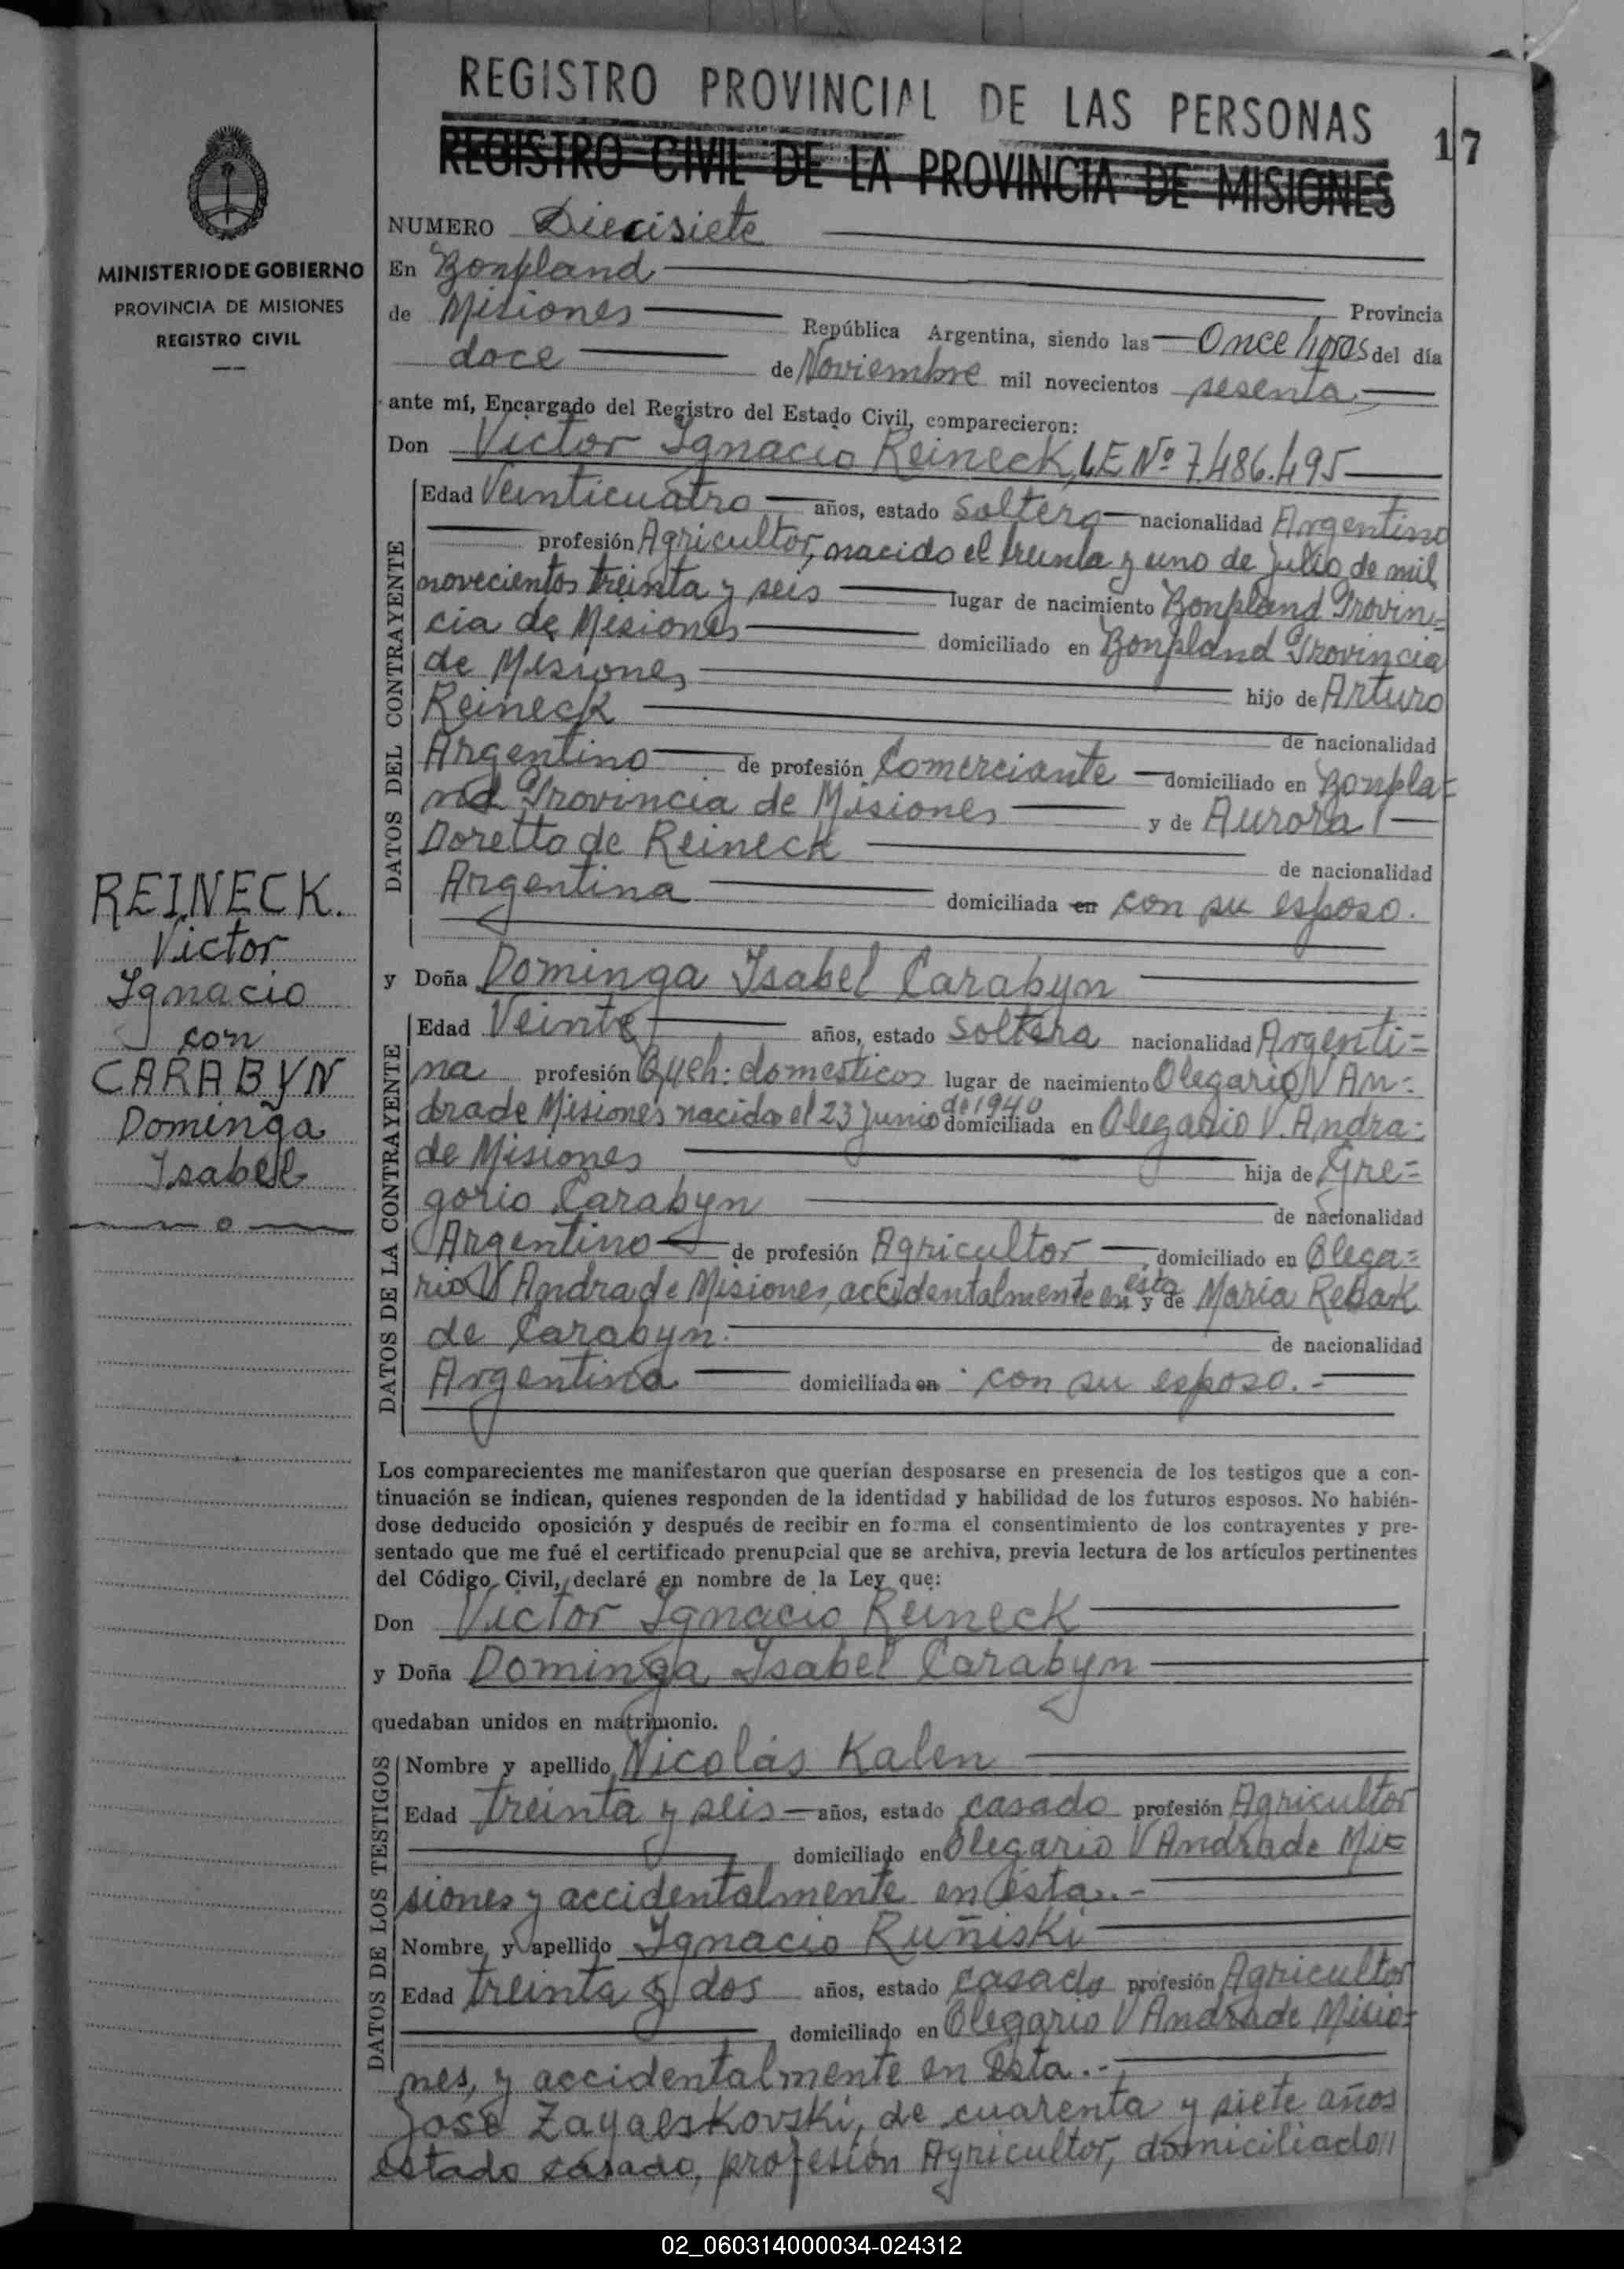 REGISTRO PROVINCIAL DE LAS PERSONAS
REGISTRO CIVIL DE LA PROVINCIA DE MISIONES
17
MINISTERIO DE GOBIERNO
PROVINCIA DE MISIONES
REGISTRO CIVIL
REINECK.
Victor
Ignacio
con
CARABYN
Dominga
Isabel
NUMERO Diecisiete
En Bonpland Provincia
de Misiones República Argentina, siendo las Once horas del día
doce de Noviembre mil novecientos sesenta.
ante mí, Encargado del Registro del Estado Civil, comparecieron:
Don Victor Ignacio Reineck, LE Nº 7.486.495
DATOS DEL CONTRAYENTE
Edad Veinticuatro años, estado Soltero nacionalidad Argentino
profesión Agricultor, nacido el treinta y uno de julio de mil
novecientos treinta y seis lugar de nacimiento Bonpland Provin=
cia de Misiones domiciliado en Bonpland Provincia
de Misiones hijo de Arturo
Reineck de nacionalidad
Argentino de profesión Comerciante domiciliado en Bonpla=
nd Provincia de Misiones y de Aurora
Doretto de Reineck de nacionalidad
Argentina domiciliada en con su esposo.
y Doña Dominga Isabel Carabyn
DATOS DE LA CONTRAYENTE
Edad Veinte años, estado Soltera nacionalidad Argenti=
na profesión Queh: domesticos lugar de nacimiento Olegario V An=
drade Misiones nacida el 23 junio de 1940 domiciliada en Olegario V. Andra=
de Misiones hija de Gre=
gorio Carabyn de nacionalidad
Argentino de profesión Agricultor domiciliado en Olega=
rio V Andrade Misiones, accidentalmente en ésta y de Maria Rebak
de Carabyn. de nacionalidad
Argentina domiciliada en con su esposo.-
Los comparecientes me manifestaron que querían desposarse en presencia de los testigos que a con-
tinuación se indican, quienes responden de la identidad y habilidad de los futuros esposos. No habién-
dose deducido oposición y después de recibir en forma el consentimiento de los contrayentes y pre-
sentado que me fué el certificado prenupcial que se archiva, previa lectura de los artículos pertinentes
del Código Civil, declaré en nombre de la Ley que:
Don Victor Ignacio Reineck
y Doña Dominga Isabel Carabyn
quedaban unidos en matrimonio.
DATOS DE LOS TESTIGOS
Nombre y apellido Nicolás Kalen
Edad treinta y seis años, estado casado profesión Agricultor
domiciliado en Olegario V Andrade Mi=
siones y accidentalmente en ésta.-
Nombre y apellido Ignacio Ruñiski
Edad treinta y dos años, estado casado profesión Agricultor
domiciliado en Olegario V Andrade Misio=
nes, y accidentalmente en ésta.-
José Zayaeskovski, de cuarenta y siete años
estado casado, profesión Agricultor, domiciliado//
02_060314000034-024312